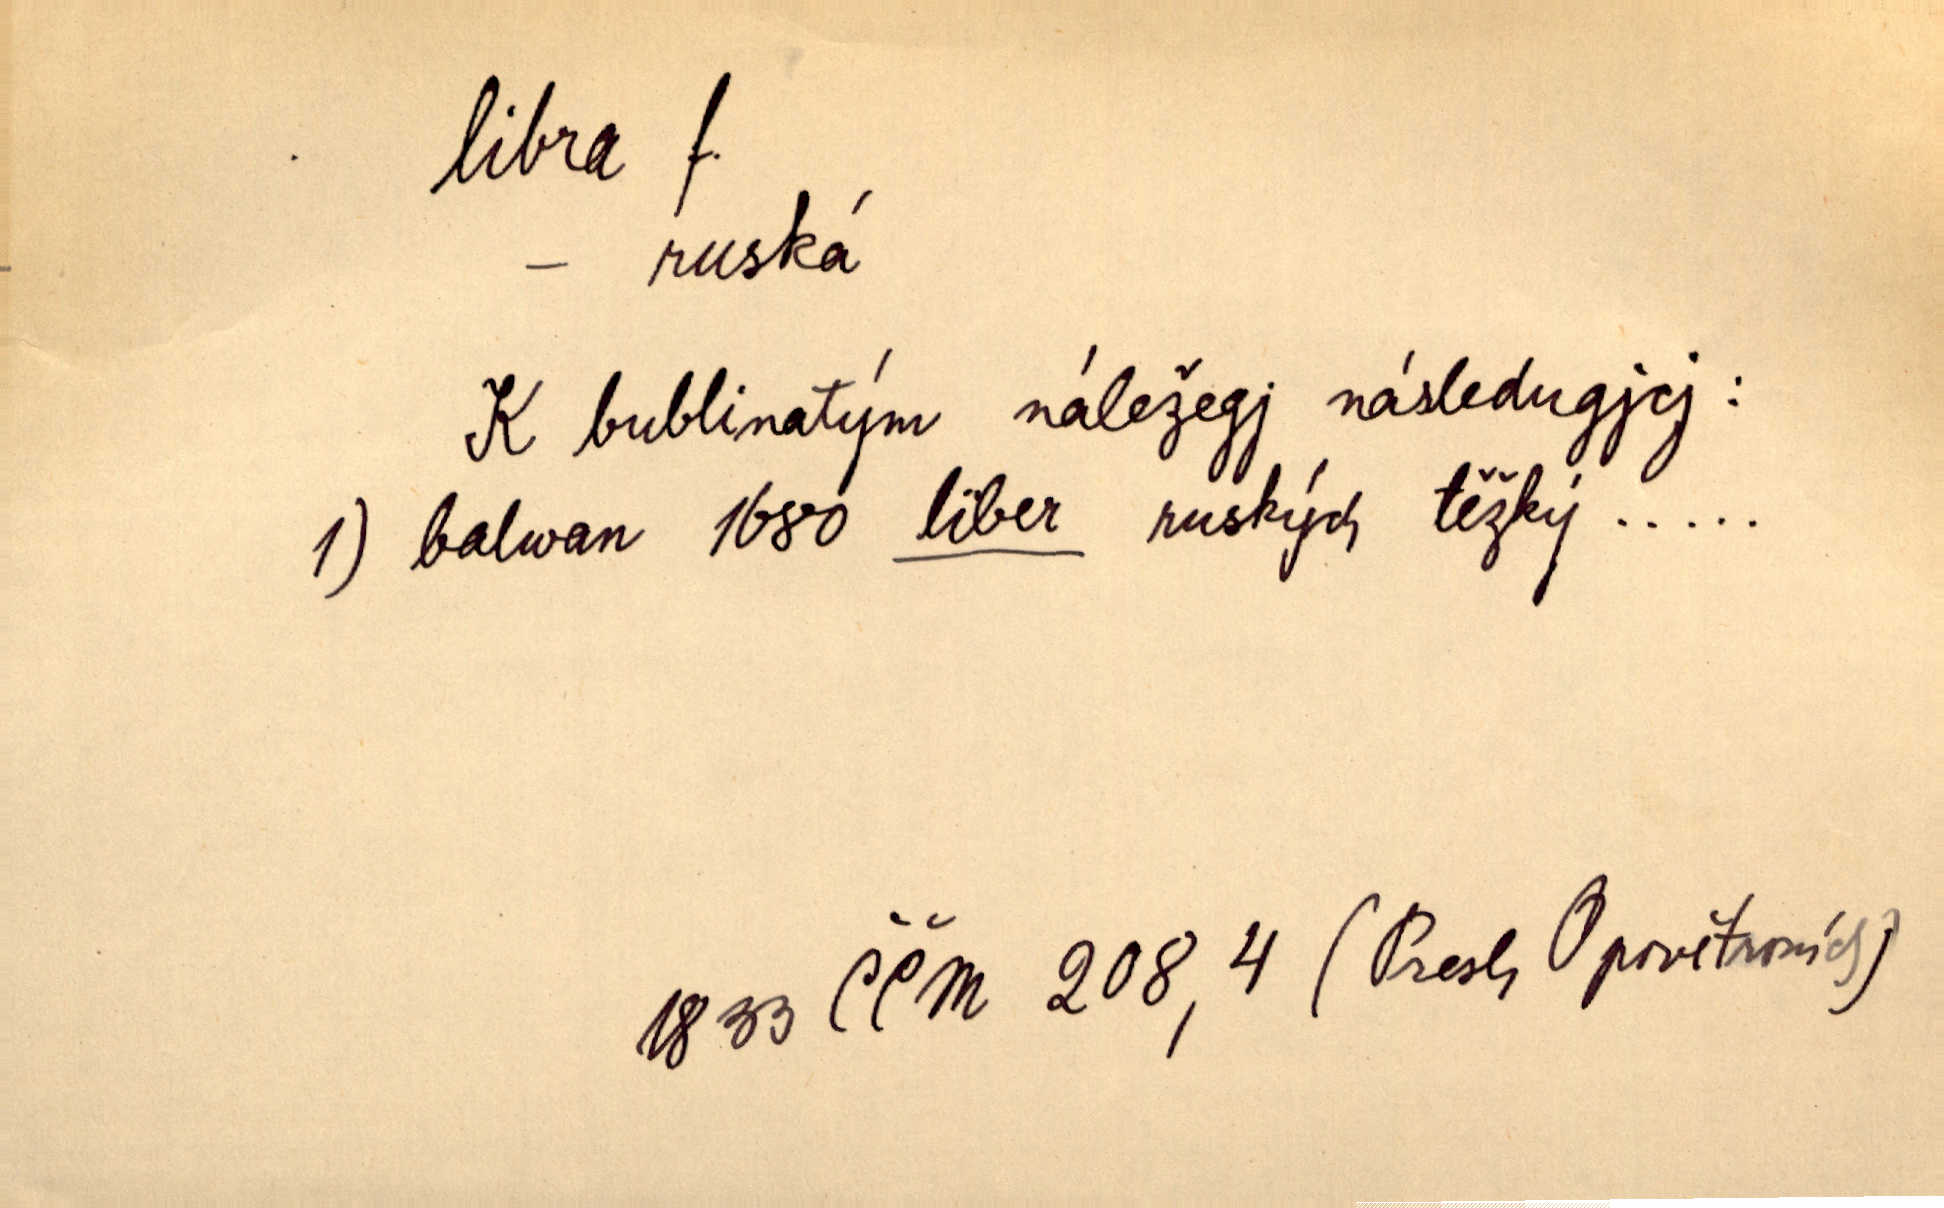 libra f.
– ruská
K bublinatým náležegj následugjcj :
1) balwan 1680 liber ruských těžký .....
1833 ČČM 208,4 (Presl, O povětroních)